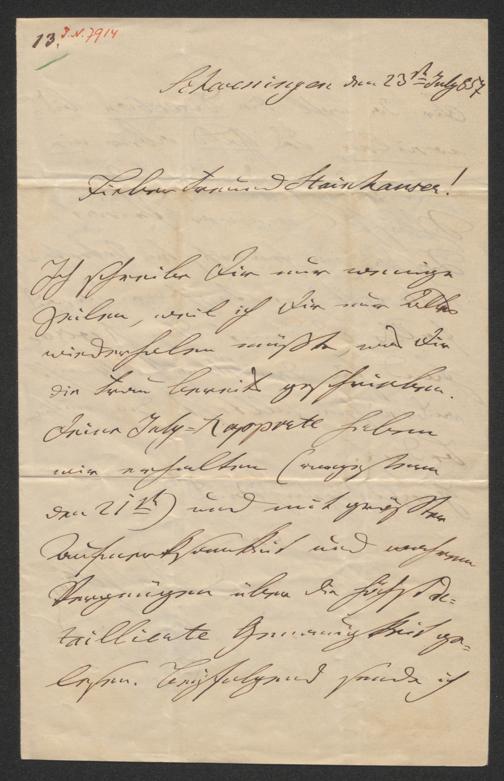 13. J.N. 7914
Scheveningen den 23st July 857
Lieber Freund Steinhauser!
Ich schreibe Dir nur wenige
Zeilen, weil ich Dir nur Alles
wiederholen müßte, was Dir
die Frau bereits geschrieben.
Deine July-Rapporte haben
wir erhalten (vorgestern
den 21st) und mit größter
Aufmerksamkeit und wahrem
Vergnügen über die höchst de=
taillierte Genauigkeit ge=
lesen. Beyfolgend sende ich